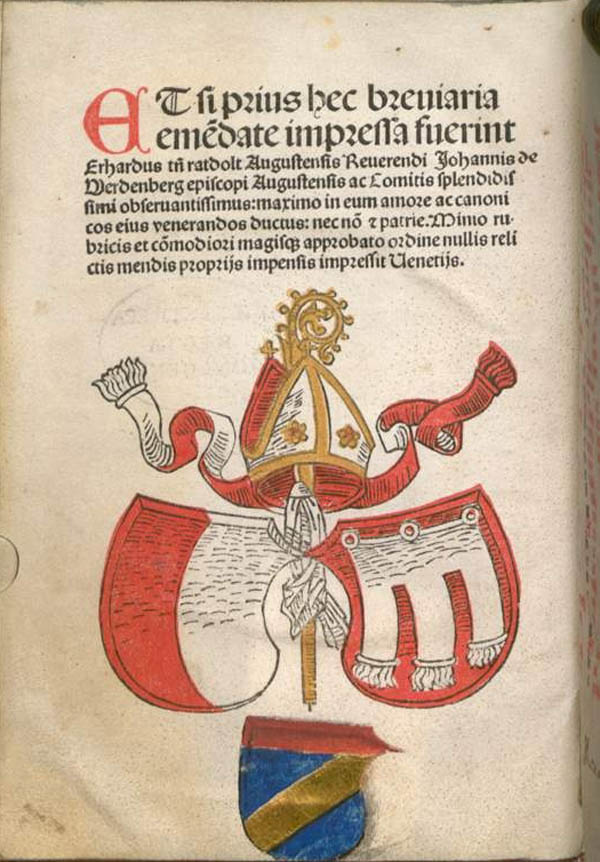 ET si prius hec breuiaria
emēdate impressa fuerint
Erhardus tñ ratdolt Augustensis Reuerendi Johannis de
Werdenberg episcopi Augustensis ac Comitis splendidis
simi obseruantissimus: maximo in eum amore ac canoni
cos eius venerandos ductus: nec nō ⁊ patrie. Minio ru-
bricis et cōmodiori magisqꝫ approbato ordine nullis reli
ctis mendis proprijs impensis impressit Uenetijs.